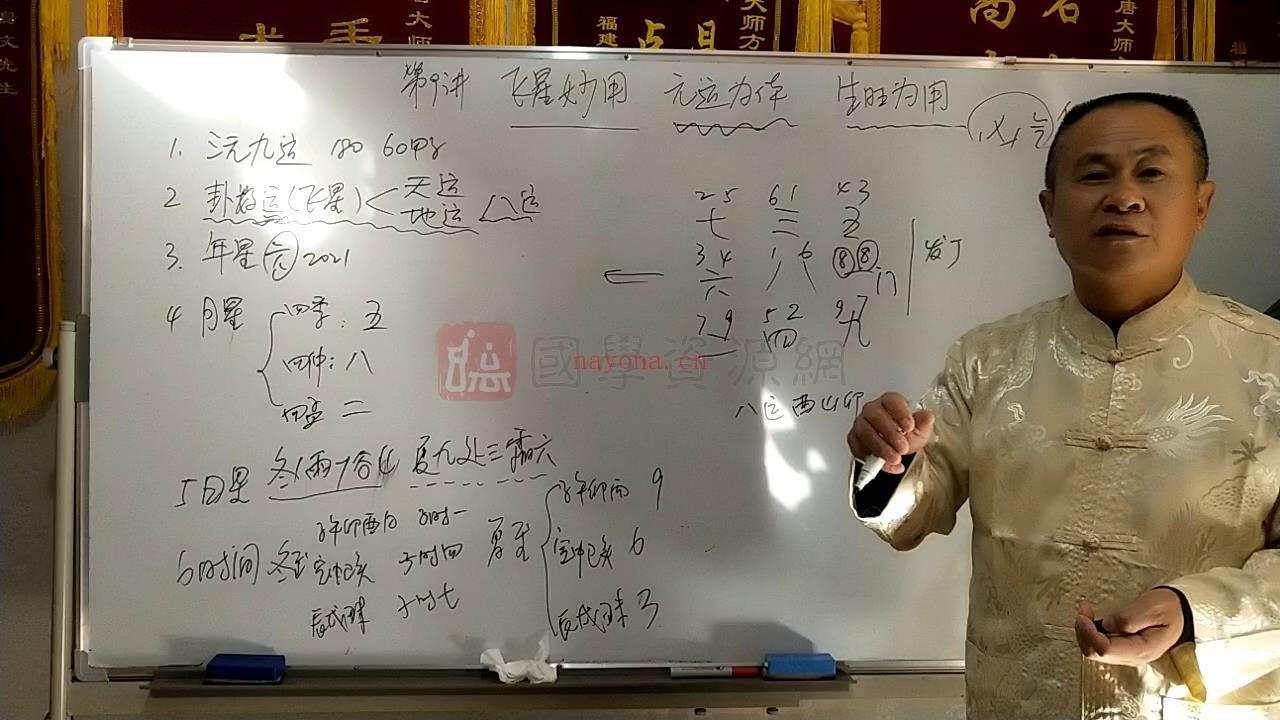 大师
福建
点
大师方
唐大师
福
第9讲 飞星妙用 元运为体 生旺为用
1. 三元九运 180 60甲子
2 卦数运(飞星) 天运
地运 八运
3. 年星 六 2021
4 月星 四季: 五
四仲: 八
四孟 二
5 日星 冬1雨7谷4 夏九处三霜六
6 时间 冬至 子午卯酉日 子时一
寅申巳亥 子时四
辰戌丑未 子时七
夏至 子午卯酉 9
寅申巳亥 6
辰戌丑未 3
25 61 43
七 三 五
34 16 88
六 八 门 发丁
79 52 97
二 四 九
八运酉山卯
國學資源網
nayona.cn